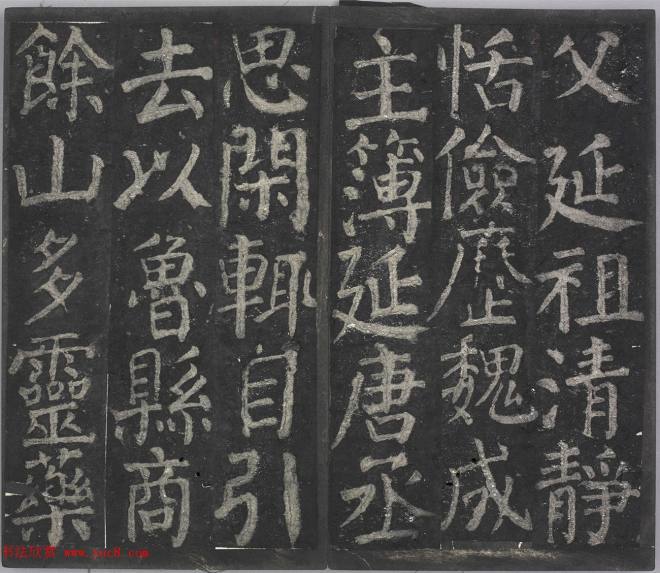 父延祖清靜
恬儉歷魏成
主簿延唐丞
思閑輙自引
去以魯縣商
餘山多靈藥
书法欣赏 www.yac8.com